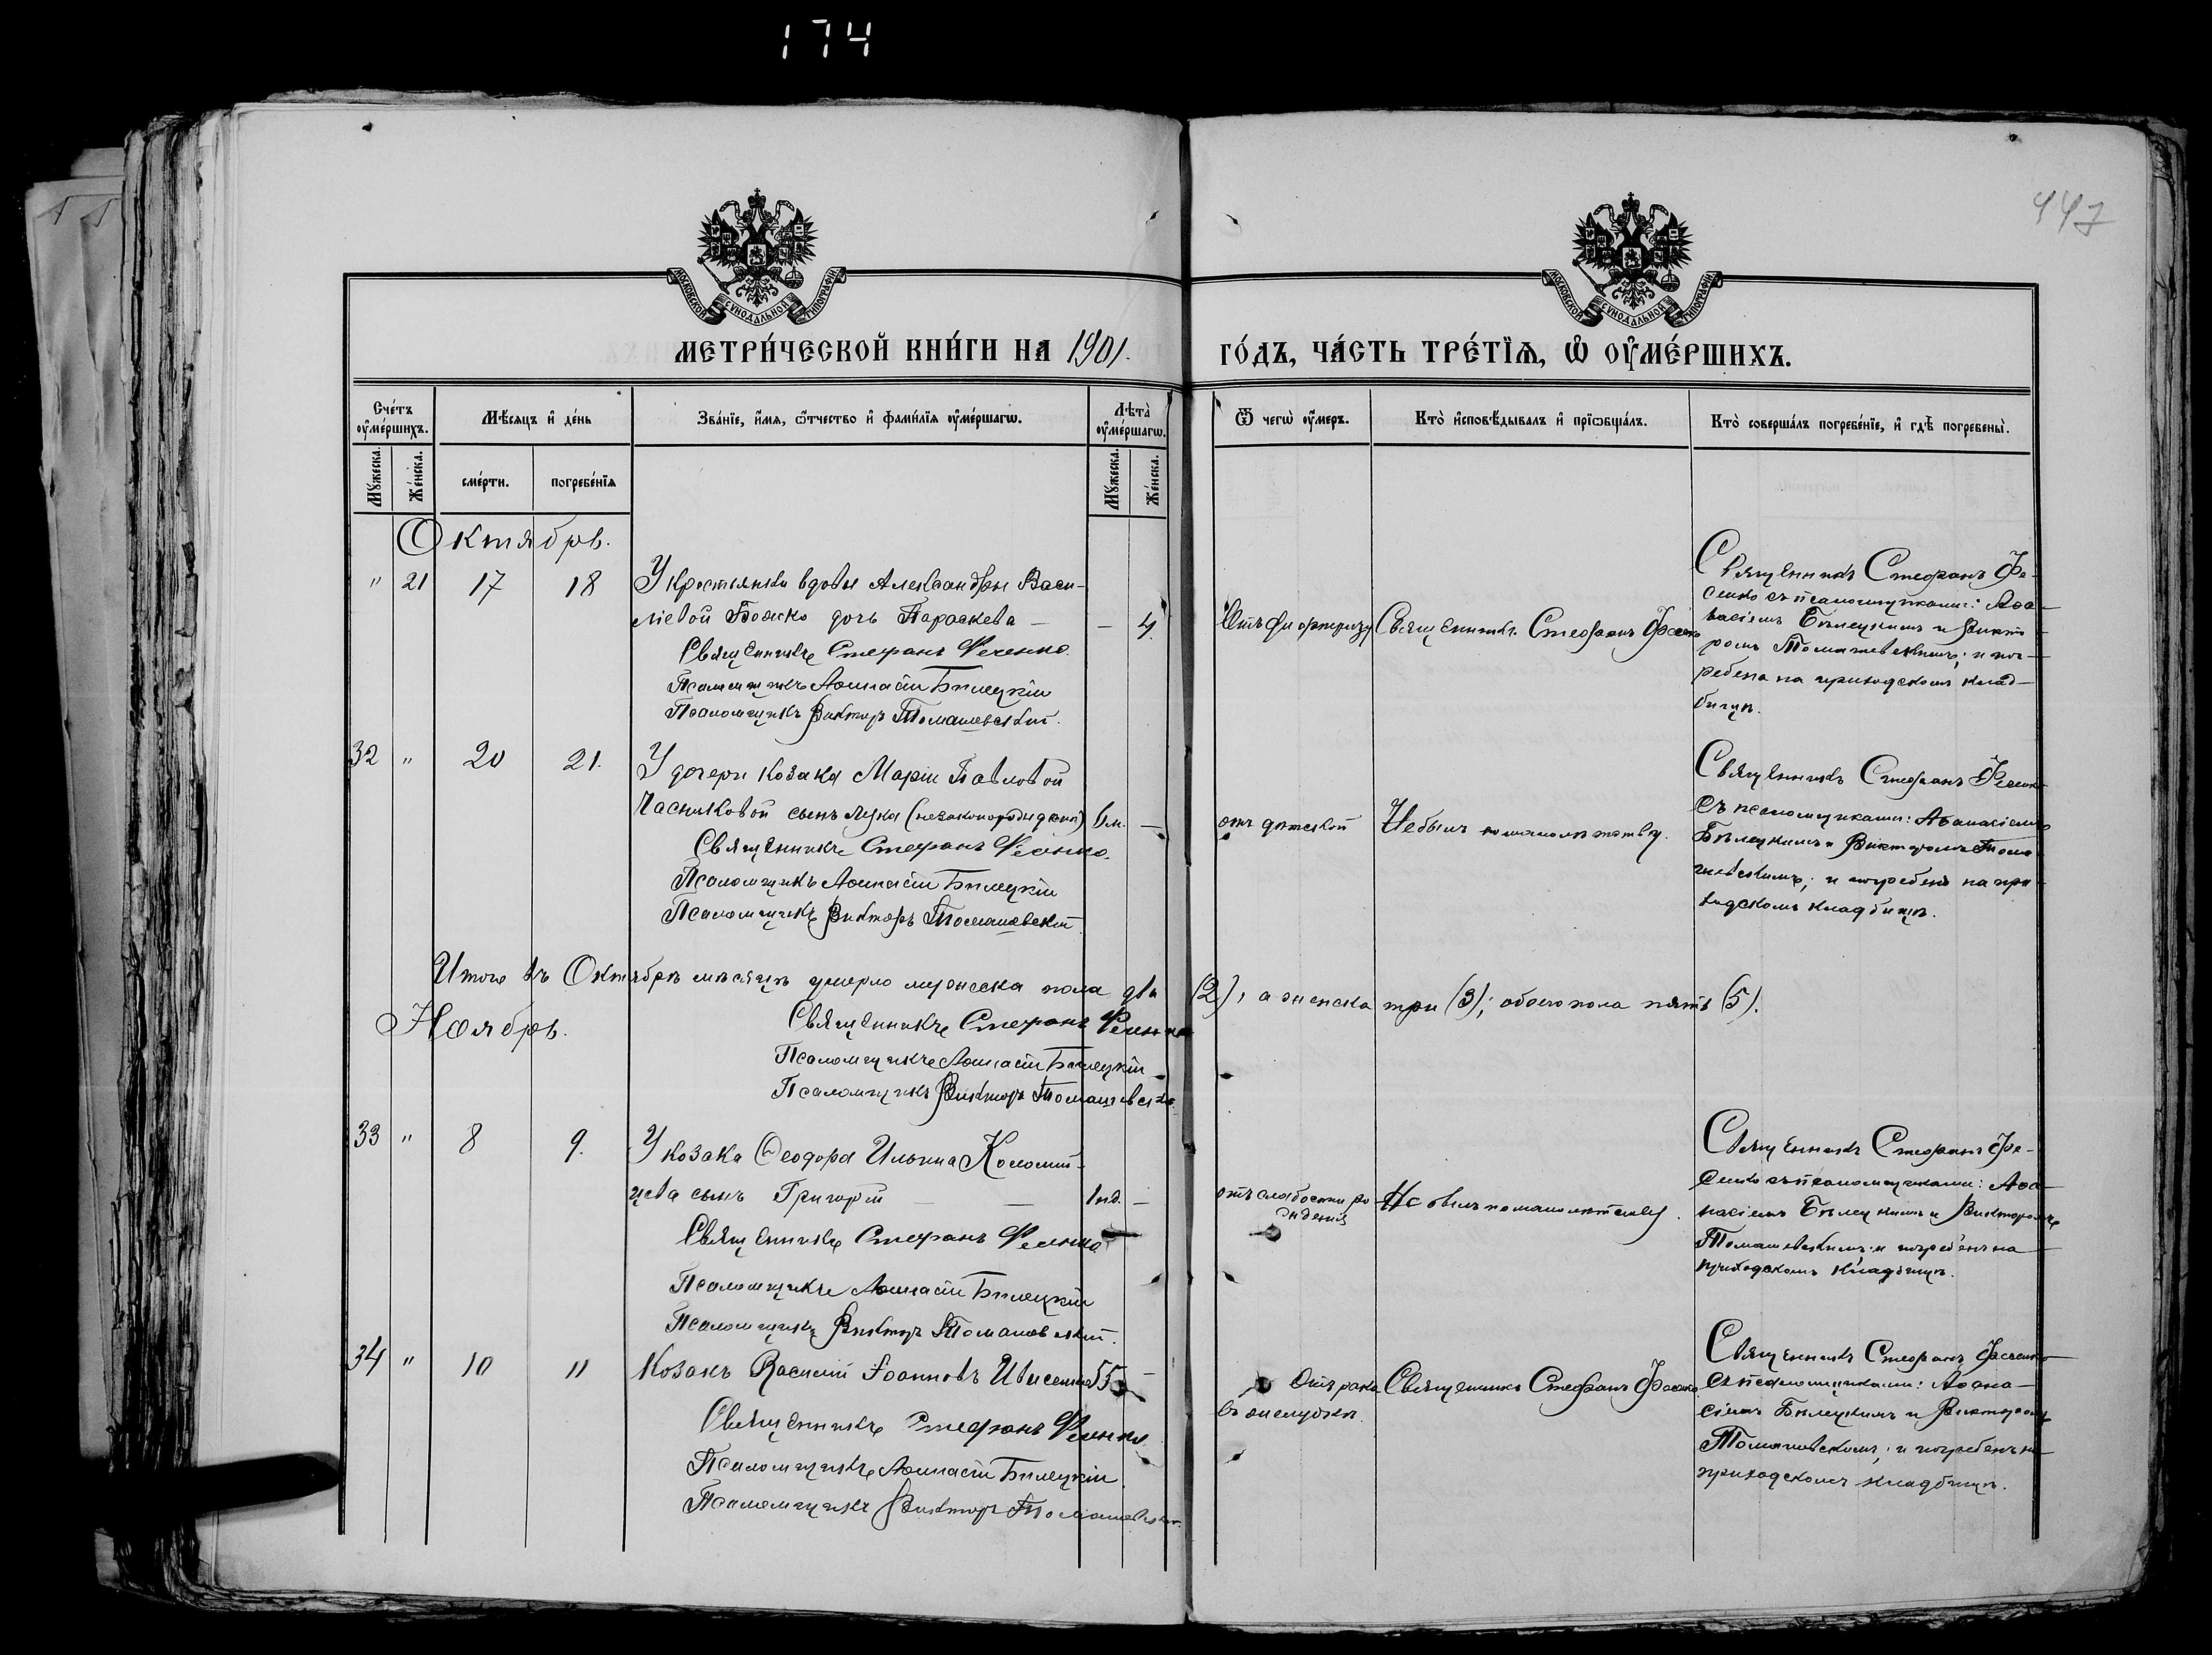 174
447
МОСКОВСКОЙ СѴНОДАЛЬНОЙ ТИПОГРАФІИ
МОСКОВСКОЙ СѴНОДАЛЬНОЙ ТИПОГРАФІИ
МЕТРИ́ЧЕСКОЙ КНИ́ГИ НА 1901.
ГО́ДЪ, ЧА́СТЬ ТРЕ́ТЇѦ, Ѡ҆ ОУ҆МЕ́РШИХЪ.
Сче́тъ оу҆ме́ршихъ.
Мѣ́сѧцъ и҆ де́нь
Зва́нїе, и҆́мѧ, ѻ҆́тчество и҆ фами́лїѧ оу҆ме́ршагѡ.
Лѣ́та оу҆ме́ршагѡ.
Ѿ чегѡ̀ оу҆́меръ.
Кто̀ и҆сповѣ́дывалъ и҆ прїѡбща́лъ.
Кто̀ соверша́лъ погребе́нїе, и҆ гдѣ̀ погребены̀.
Мꙋ́жеска.
Же́нска.
сме́рти.
погребе́нїѧ
Мꙋ́жеска.
Же́нска.
Октябрь.
" 21 17 18 У крестьянки вдовы Александры Васи-
ліевой Божко дочь Параскева — — 4.
Священникъ Стефанъ Фесенко.
Псаломщикъ Аѳанасій Бѣлецкій
Псаломщикъ Викторъ Томашевскій.
Отъ дифтериту
Священникъ Стефанъ Фесенко
Священникъ Стефанъ Фе-
сенко съ псаломщиками: Аѳа-
насіемъ Бѣлецкимъ и Викто-
ромъ Томашевскимъ; и пог-
ребена на приходскомъ клад-
бищѣ.
32 " 20 21. У дочери козака Маріи Павловой
Часниковой сынъ Лука (незаконорожденный) 6м. —
Священникъ Стефанъ Фесенко.
Псаломщикъ Аѳанасій Бѣлецкій
Псаломщикъ Викторъ Томашевскій
отъ дѣтской
Не былъ по малолѣтству.
Священникъ Стефанъ Фесенко
съ псаломщиками: Аѳанасіемъ
Бѣлецкимъ и Викторомъ Тома-
шевскимъ; и погребенъ на при-
ходскомъ кладбищѣ.
Итого въ Октябрѣ мѣсяцѣ умерло мужеска пола два (2), а женска три (3); обоего пола пять (5).
Священникъ Стефанъ Фесенко
Ноябрь.
Псаломщикъ Аѳанасій Бѣлецкій
Псаломщикъ Викторъ Томашевскій
33 " 8 9. У козака Ѳеодора Ильина Коломій-
цева сынъ Григорій — — 1нд. —
Священникъ Стефанъ Фесенко
Псаломщикъ Аѳанасій Бѣлецкій
Псаломщикъ Викторъ Томашевскій.
отъ слабости ро
жденія
Не былъ по малолѣтству.
Священникъ Стефанъ Фе-
сенко съ псаломщиками: Аѳа-
насіемъ Бѣлецкимъ и Викторомъ
Томашевскимъ; и погребенъ на
приходскомъ кладбищѣ.
34 " 10 11 Козакъ Василій Іоанновъ 55 —
Священникъ Стефанъ Фесенко
Псаломщикъ Аѳанасій Бѣлецкій
Псаломщикъ Викторъ Томашевскій.
Отъ рака
въ желудкѣ.
Священникъ Стефанъ Фесенко
Священникъ Стефанъ Фесенко
съ псаломщиками: Аѳана-
сіемъ Бѣлецкимъ и Викторомъ
Томашевскимъ; и погребенъ на
приходскомъ кладбищѣ.